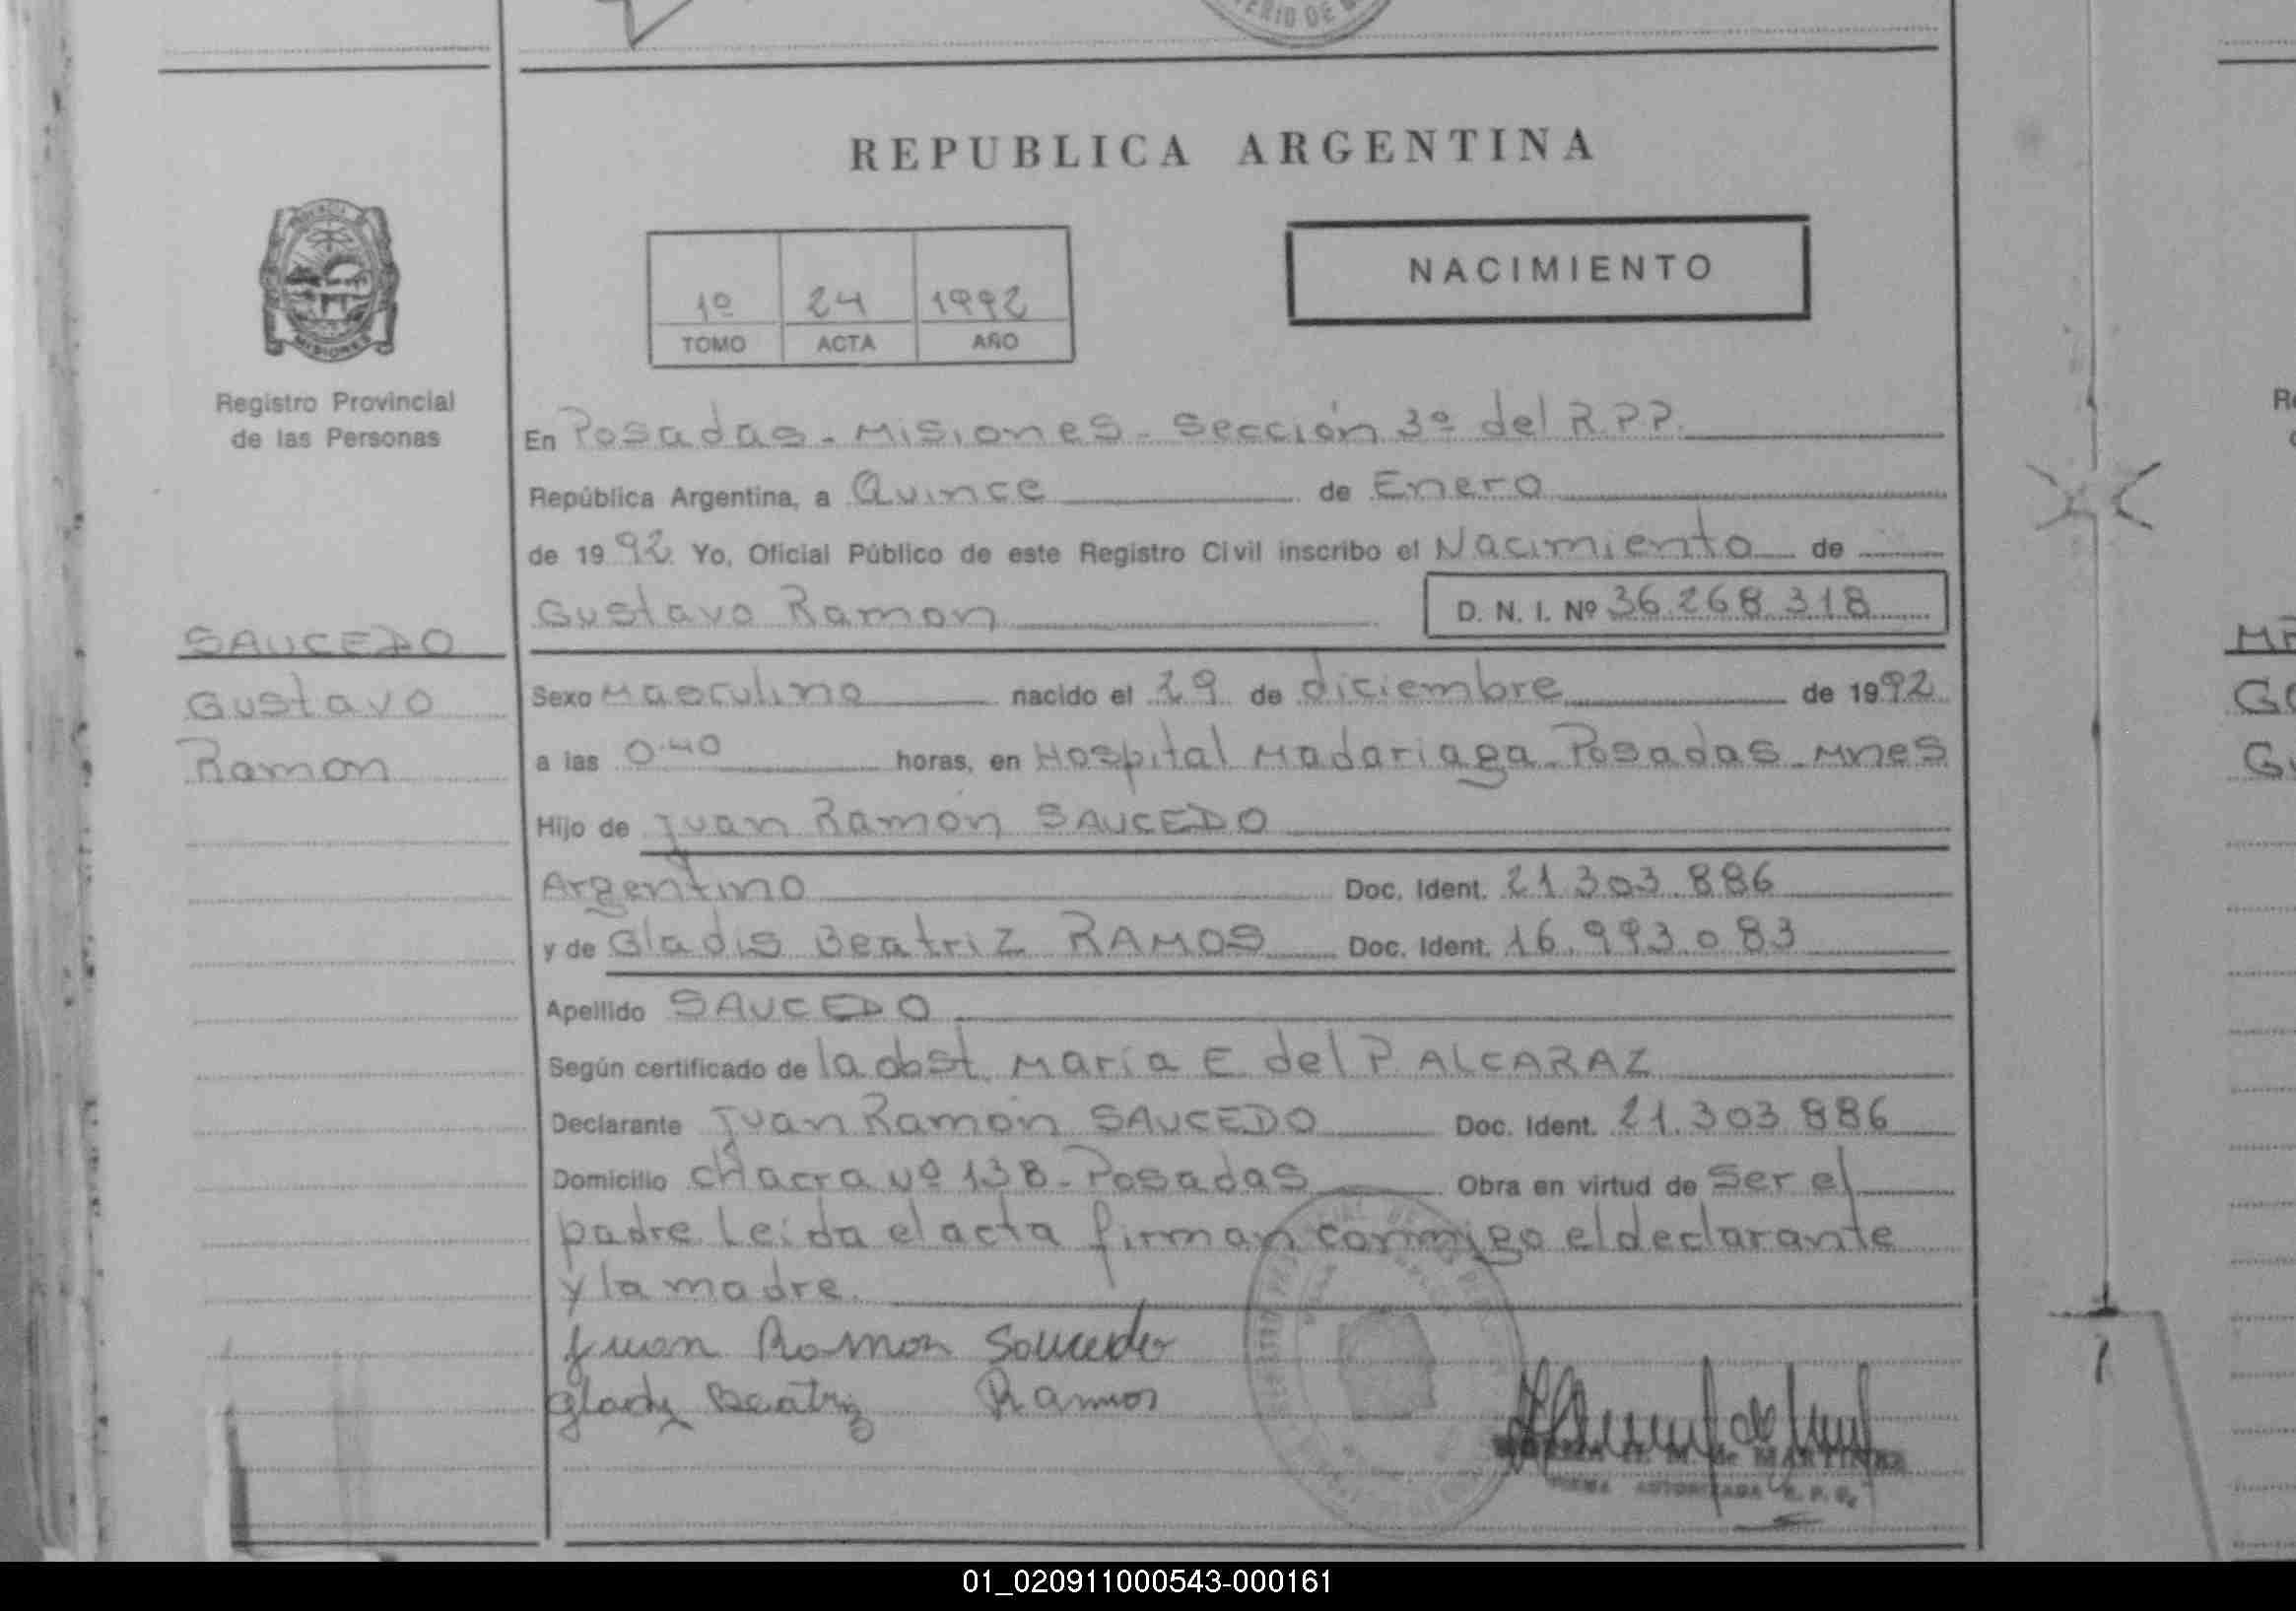 ERIO DE
REPUBLICA ARGENTINA
MISIONES
1º 24 1992
TOMO ACTA AÑO
NACIMIENTO
Registro Provincial
de las Personas
En Posadas - Misiones - Sección 3º del R.P.P.
República Argentina, a Quince de Enero
de 1992 Yo, Oficial Público de este Registro Civil inscribo el Nacimiento de
Gustavo Ramon D. N. I. Nº 36.268.318
SAUCEDO
Gustavo
Ramon
Sexo Masculino nacido el 29 de diciembre de 1992
a las 0.40 horas, en Hospital Madariaga - Posadas - Mnes
Hijo de Juan Ramón SAUCEDO
Argentino Doc. Ident. 21.303.886
y de Gladis Beatriz RAMOS Doc. Ident. 16.993.083
Apellido SAUCEDO
Según certificado de la obst. María E. del P. ALCARAZ
Declarante Juan Ramón SAUCEDO Doc. Ident. 21.303.886
Domicilio Chacra Nº 138 - Posadas Obra en virtud de Ser el
padre. Leída el acta firman conmigo el declarante
y la madre.
Juan Ramon Saucedo
Glady Beatriz Ramos
de MARTINEZ
FIRMA AUTORIZADA R. P. P.
01_020911000543-000161